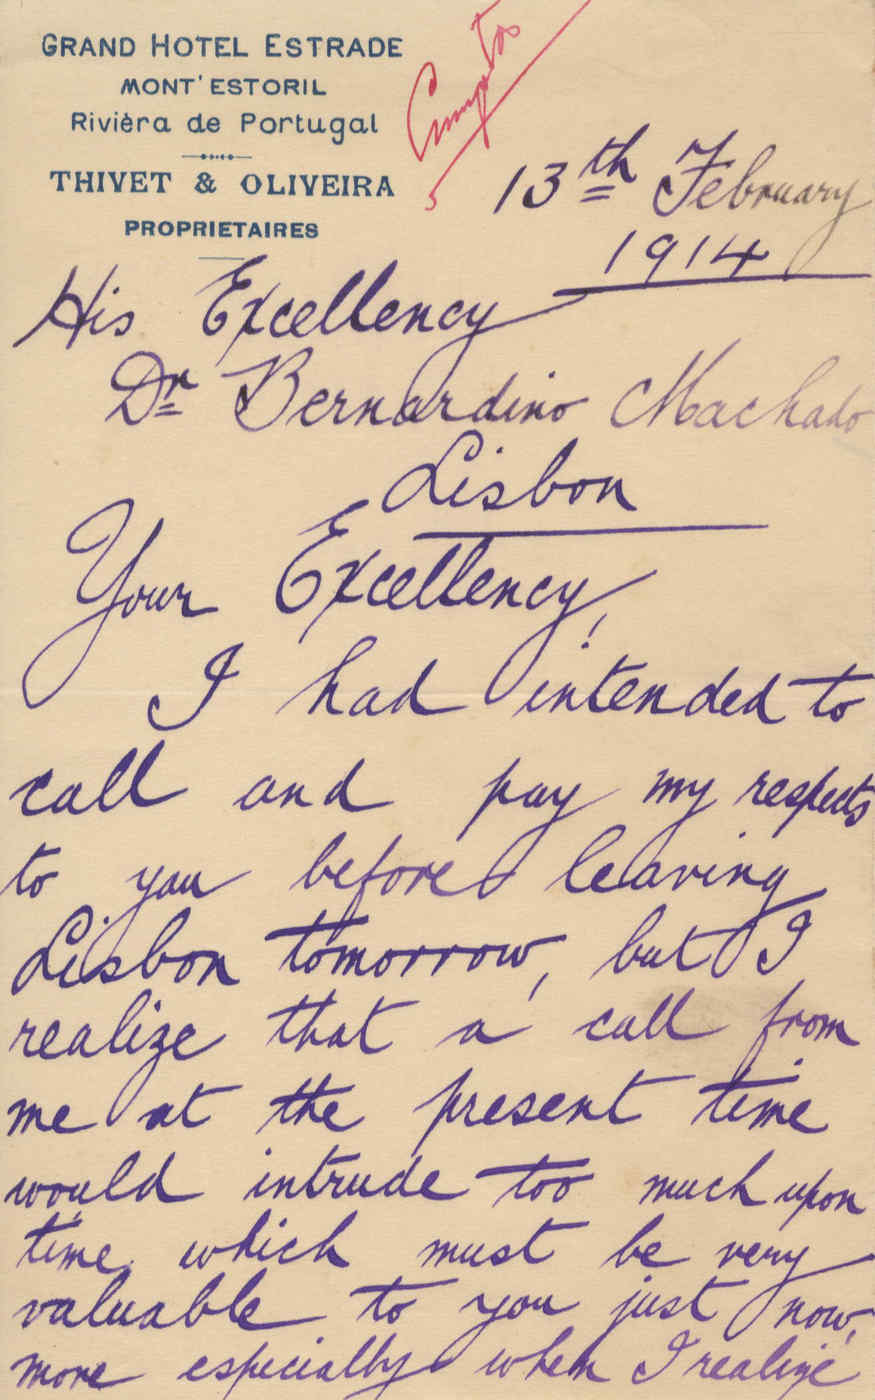 GRAND HOTEL ESTRADE
MONT' ESTORIL
Riviéra de Portugal
THIVET & OLIVEIRA
PROPRIETAIRES
Cumptos
13th February
1914
His Excellency
Dr Bernardino Machado
Lisbon
Your Excellency,
I had intended to
call and pay my respects
to you before leaving
Lisbon tomorrow, but I
realize that a call from
me at the present time
would intrude too much upon
time which must be very
valuable to you just now,
more especially when I realize